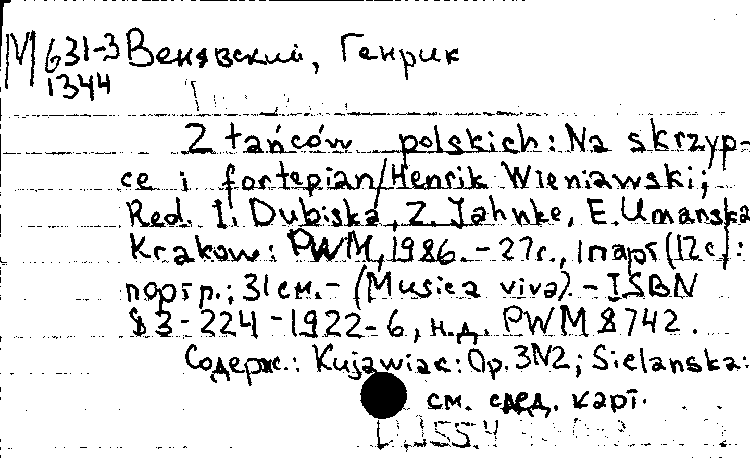 М631-3 Венявский, Генрик
1344
2 tańców polskich: Na skrzyp-
ce i fortepian/Henrik Wieniawski;
Red. I. Dubiska, Z. Jahnke, E. Umanska
Krakow: PWM, 1986. - 27с., 1парт(12с.):
портр.; 31см. - (Musica viva). - ISBN
83-224-1922-6, н.д. PWM 8742.
Содерж.: Kujawiak: Op.3N2; Sielanska:
см. след. карт.